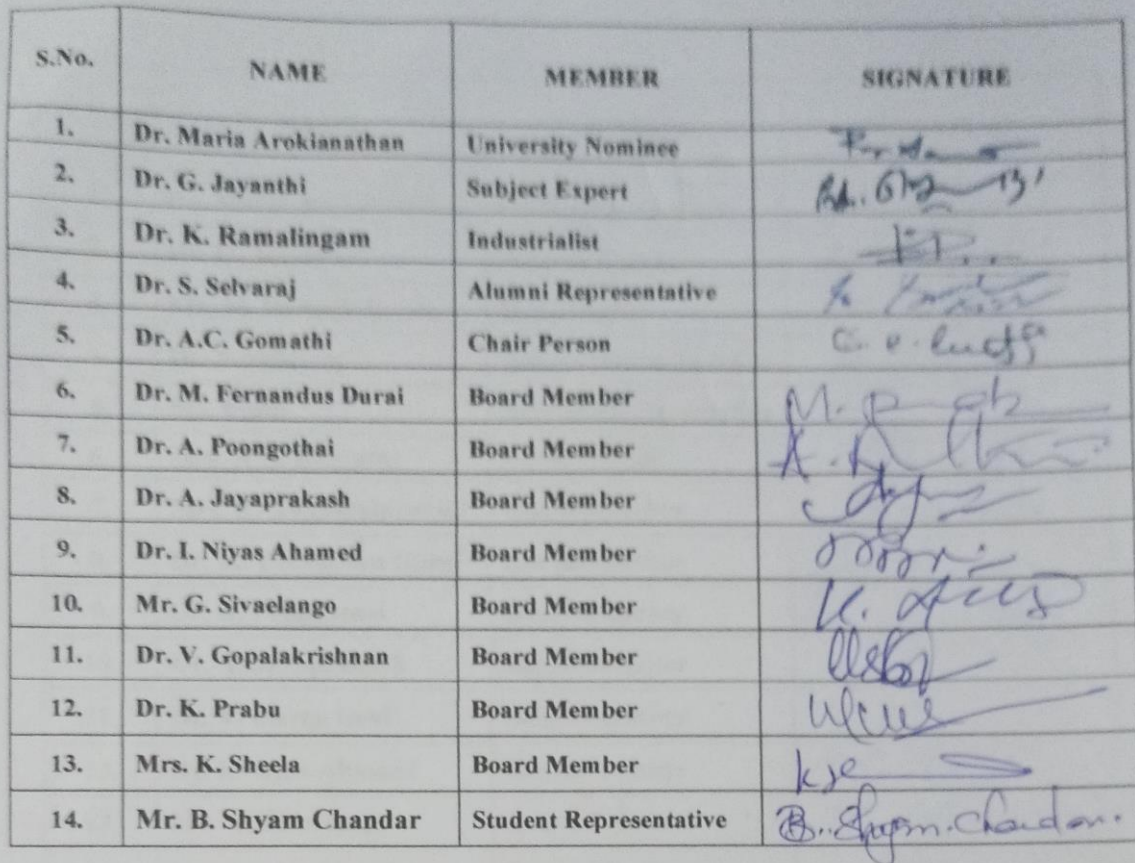 S.No. NAME MEMBER SIGNATURE
1. Dr. Maria Arokianathan University Nominee
2. Dr. G. Jayanthi Subject Expert
3. Dr. K. Ramalingam Industrialist
4. Dr. S. Selvaraj Alumni Representative
5. Dr. A.C. Gomathi Chair Person
6. Dr. M. Fernandus Durai Board Member
7. Dr. A. Poongothai Board Member
8. Dr. A. Jayaprakash Board Member
9. Dr. I. Niyas Ahamed Board Member
10. Mr. G. Sivaelango Board Member
11. Dr. V. Gopalakrishnan Board Member
12. Dr. K. Prabu Board Member
13. Mrs. K. Sheela Board Member
14. Mr. B. Shyam Chandar Student Representative B. Shyam. Chandar.